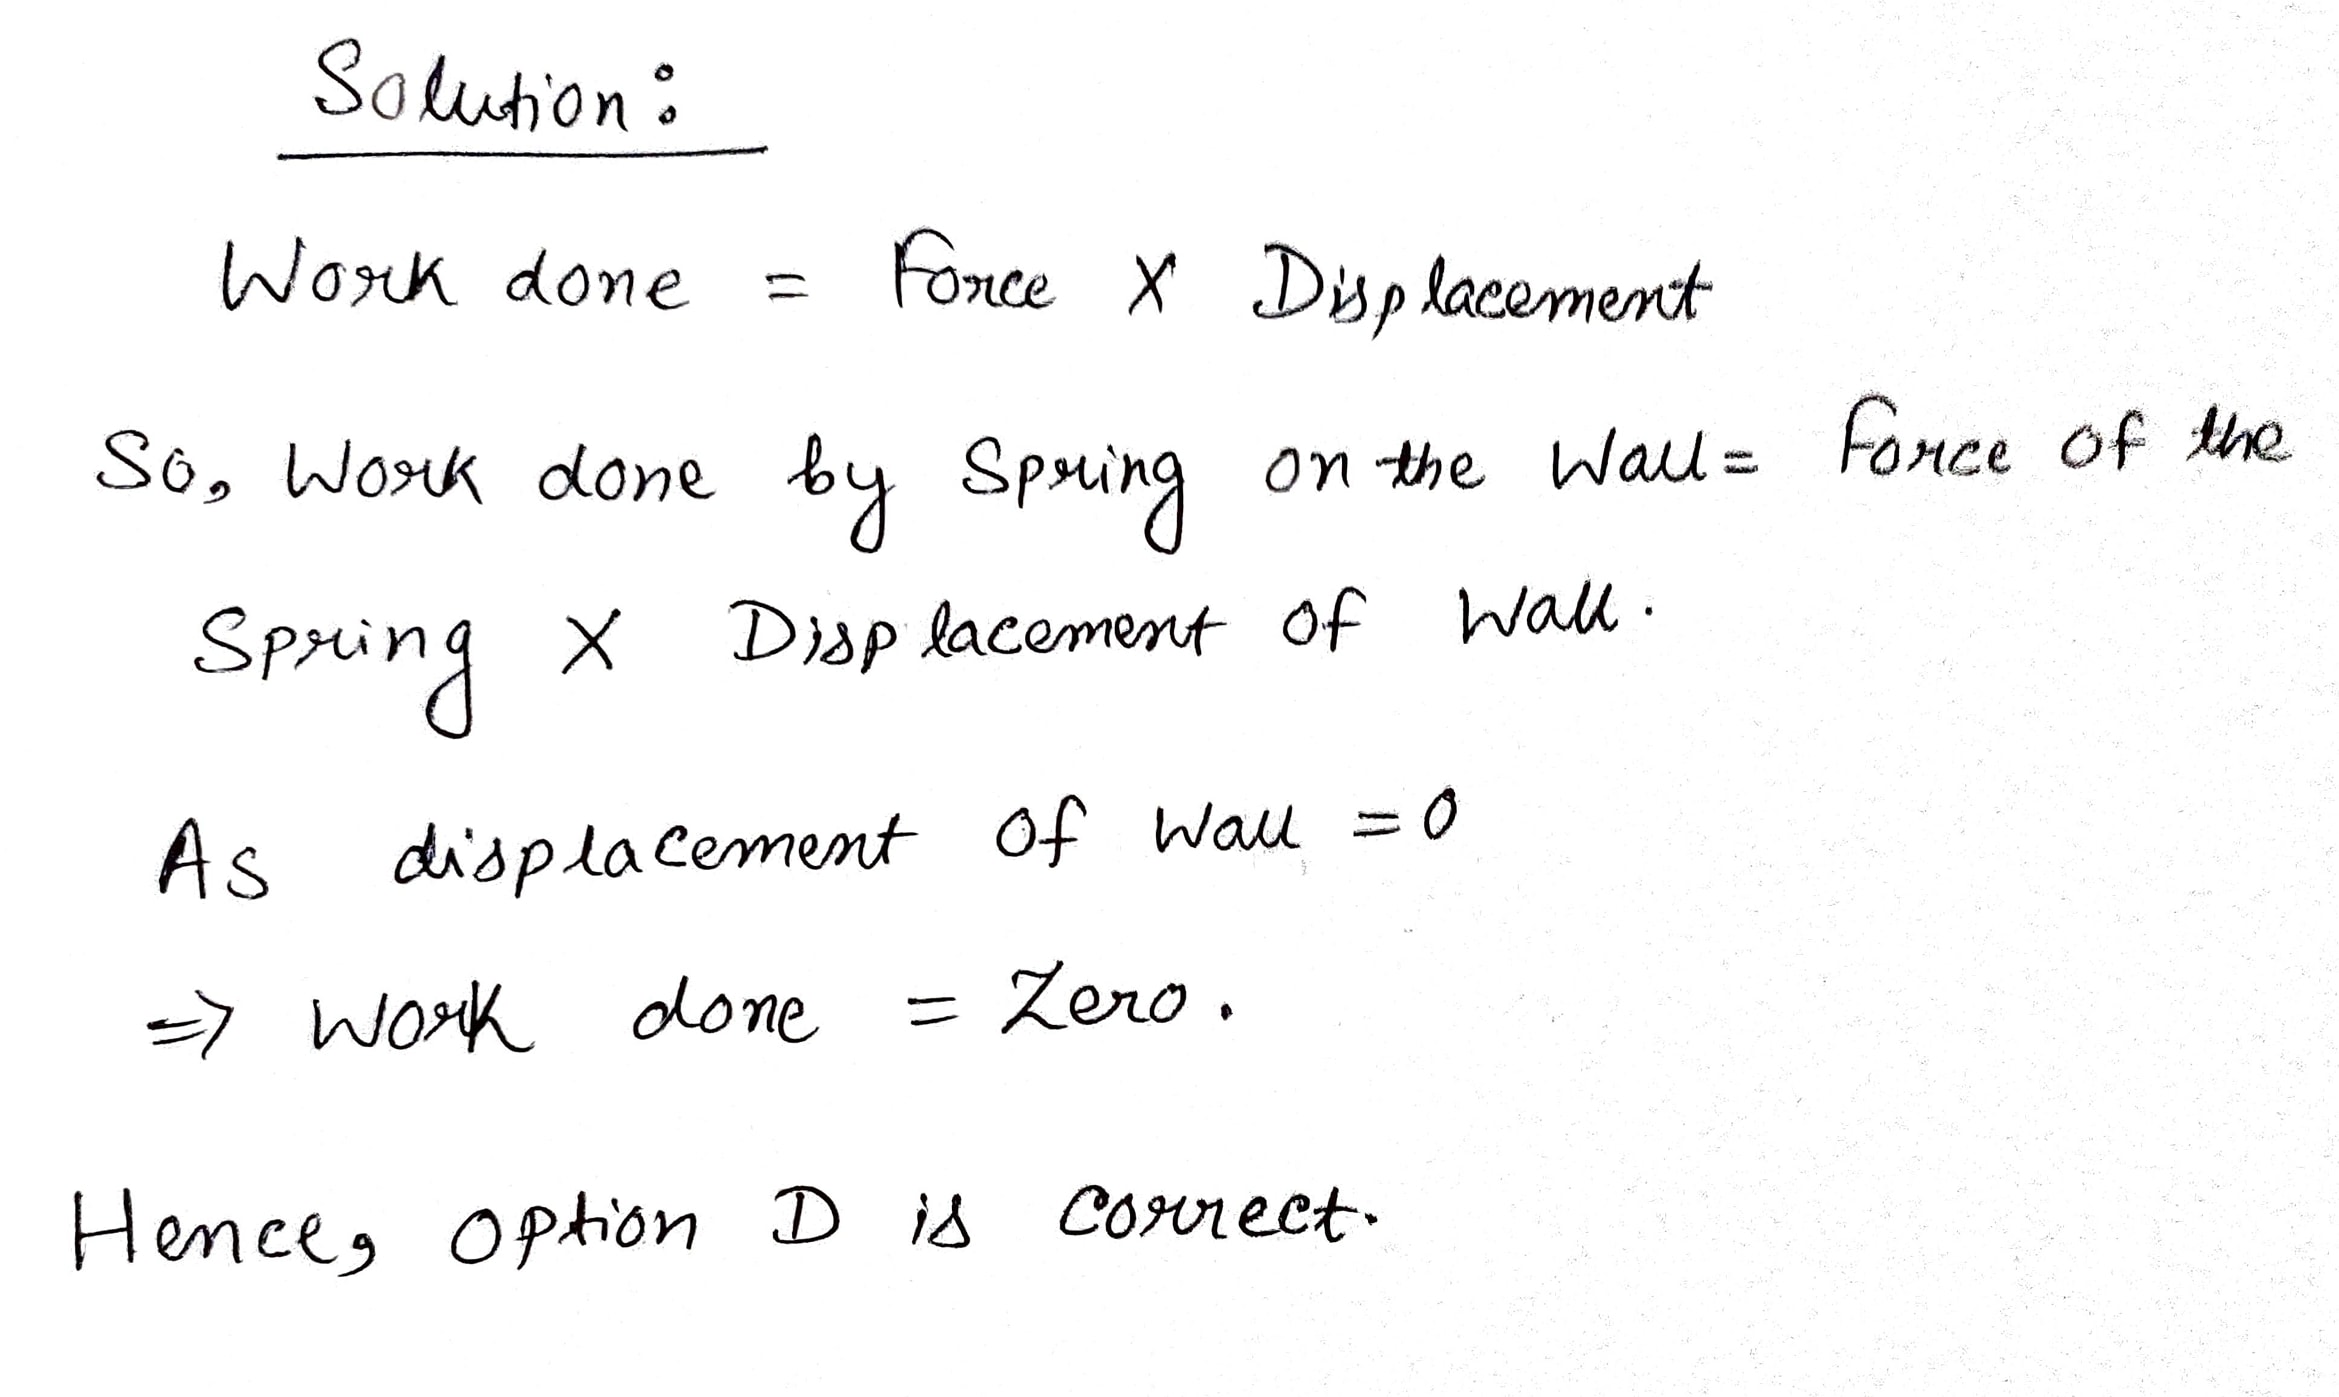 Solution:
Work done = Force X Displacement
So, Work done by Spring on the Wall = Force of the
Spring X Displacement of Wall.
As displacement of Wall = 0
=> Work done = Zero.
Hence, option D is correct.